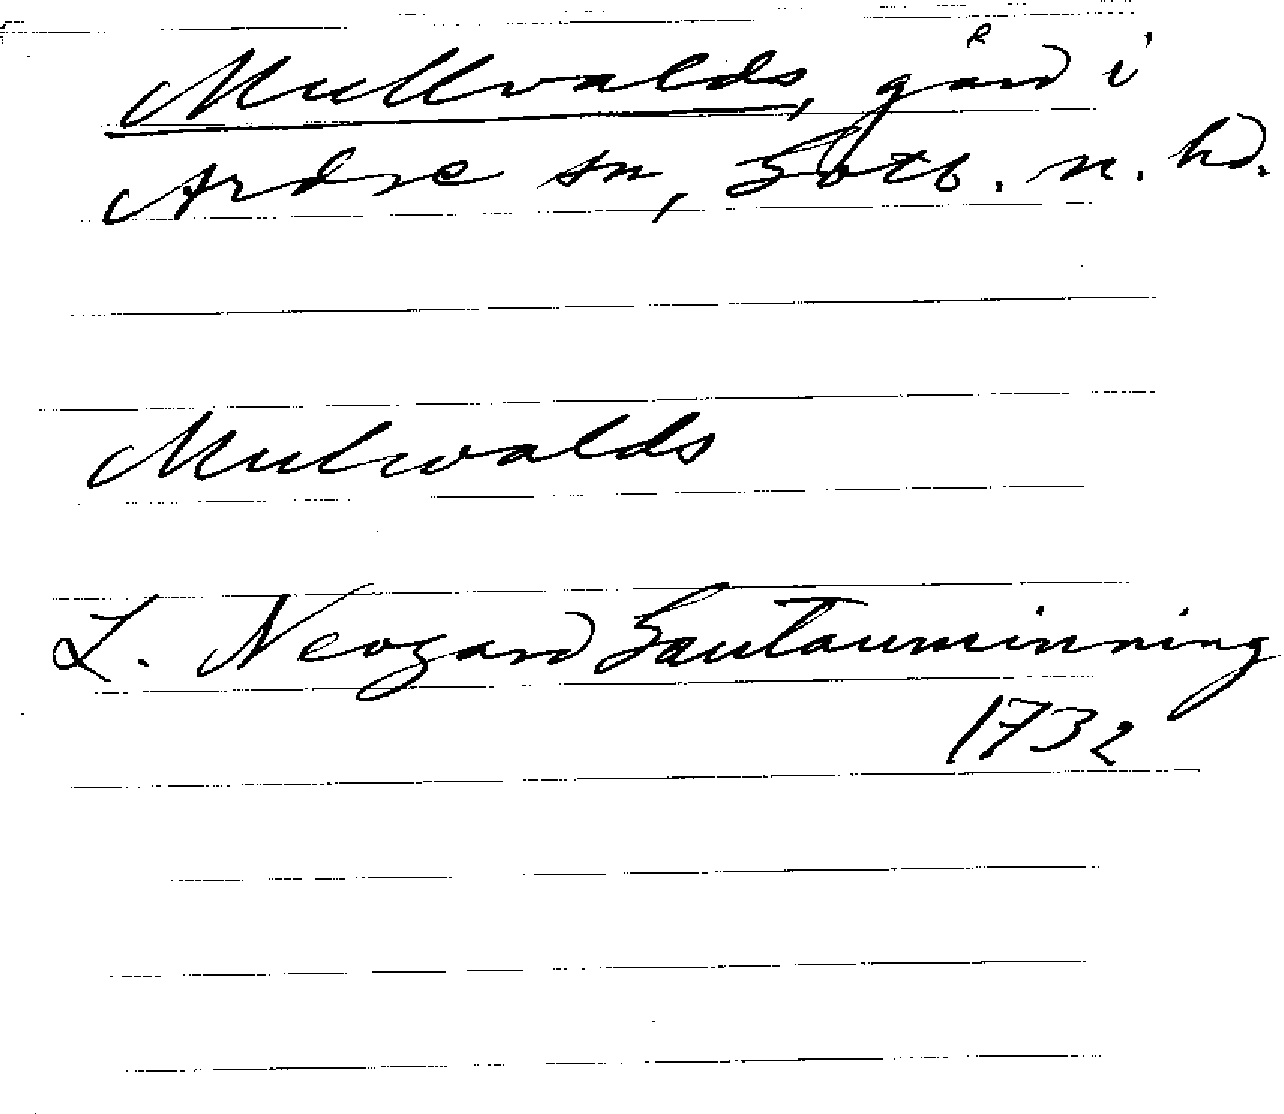 Mullvalds, gård i
Ardre sn, Gotl. n. hd.
Mulwalds
L. Neogard Gautauminning
1732